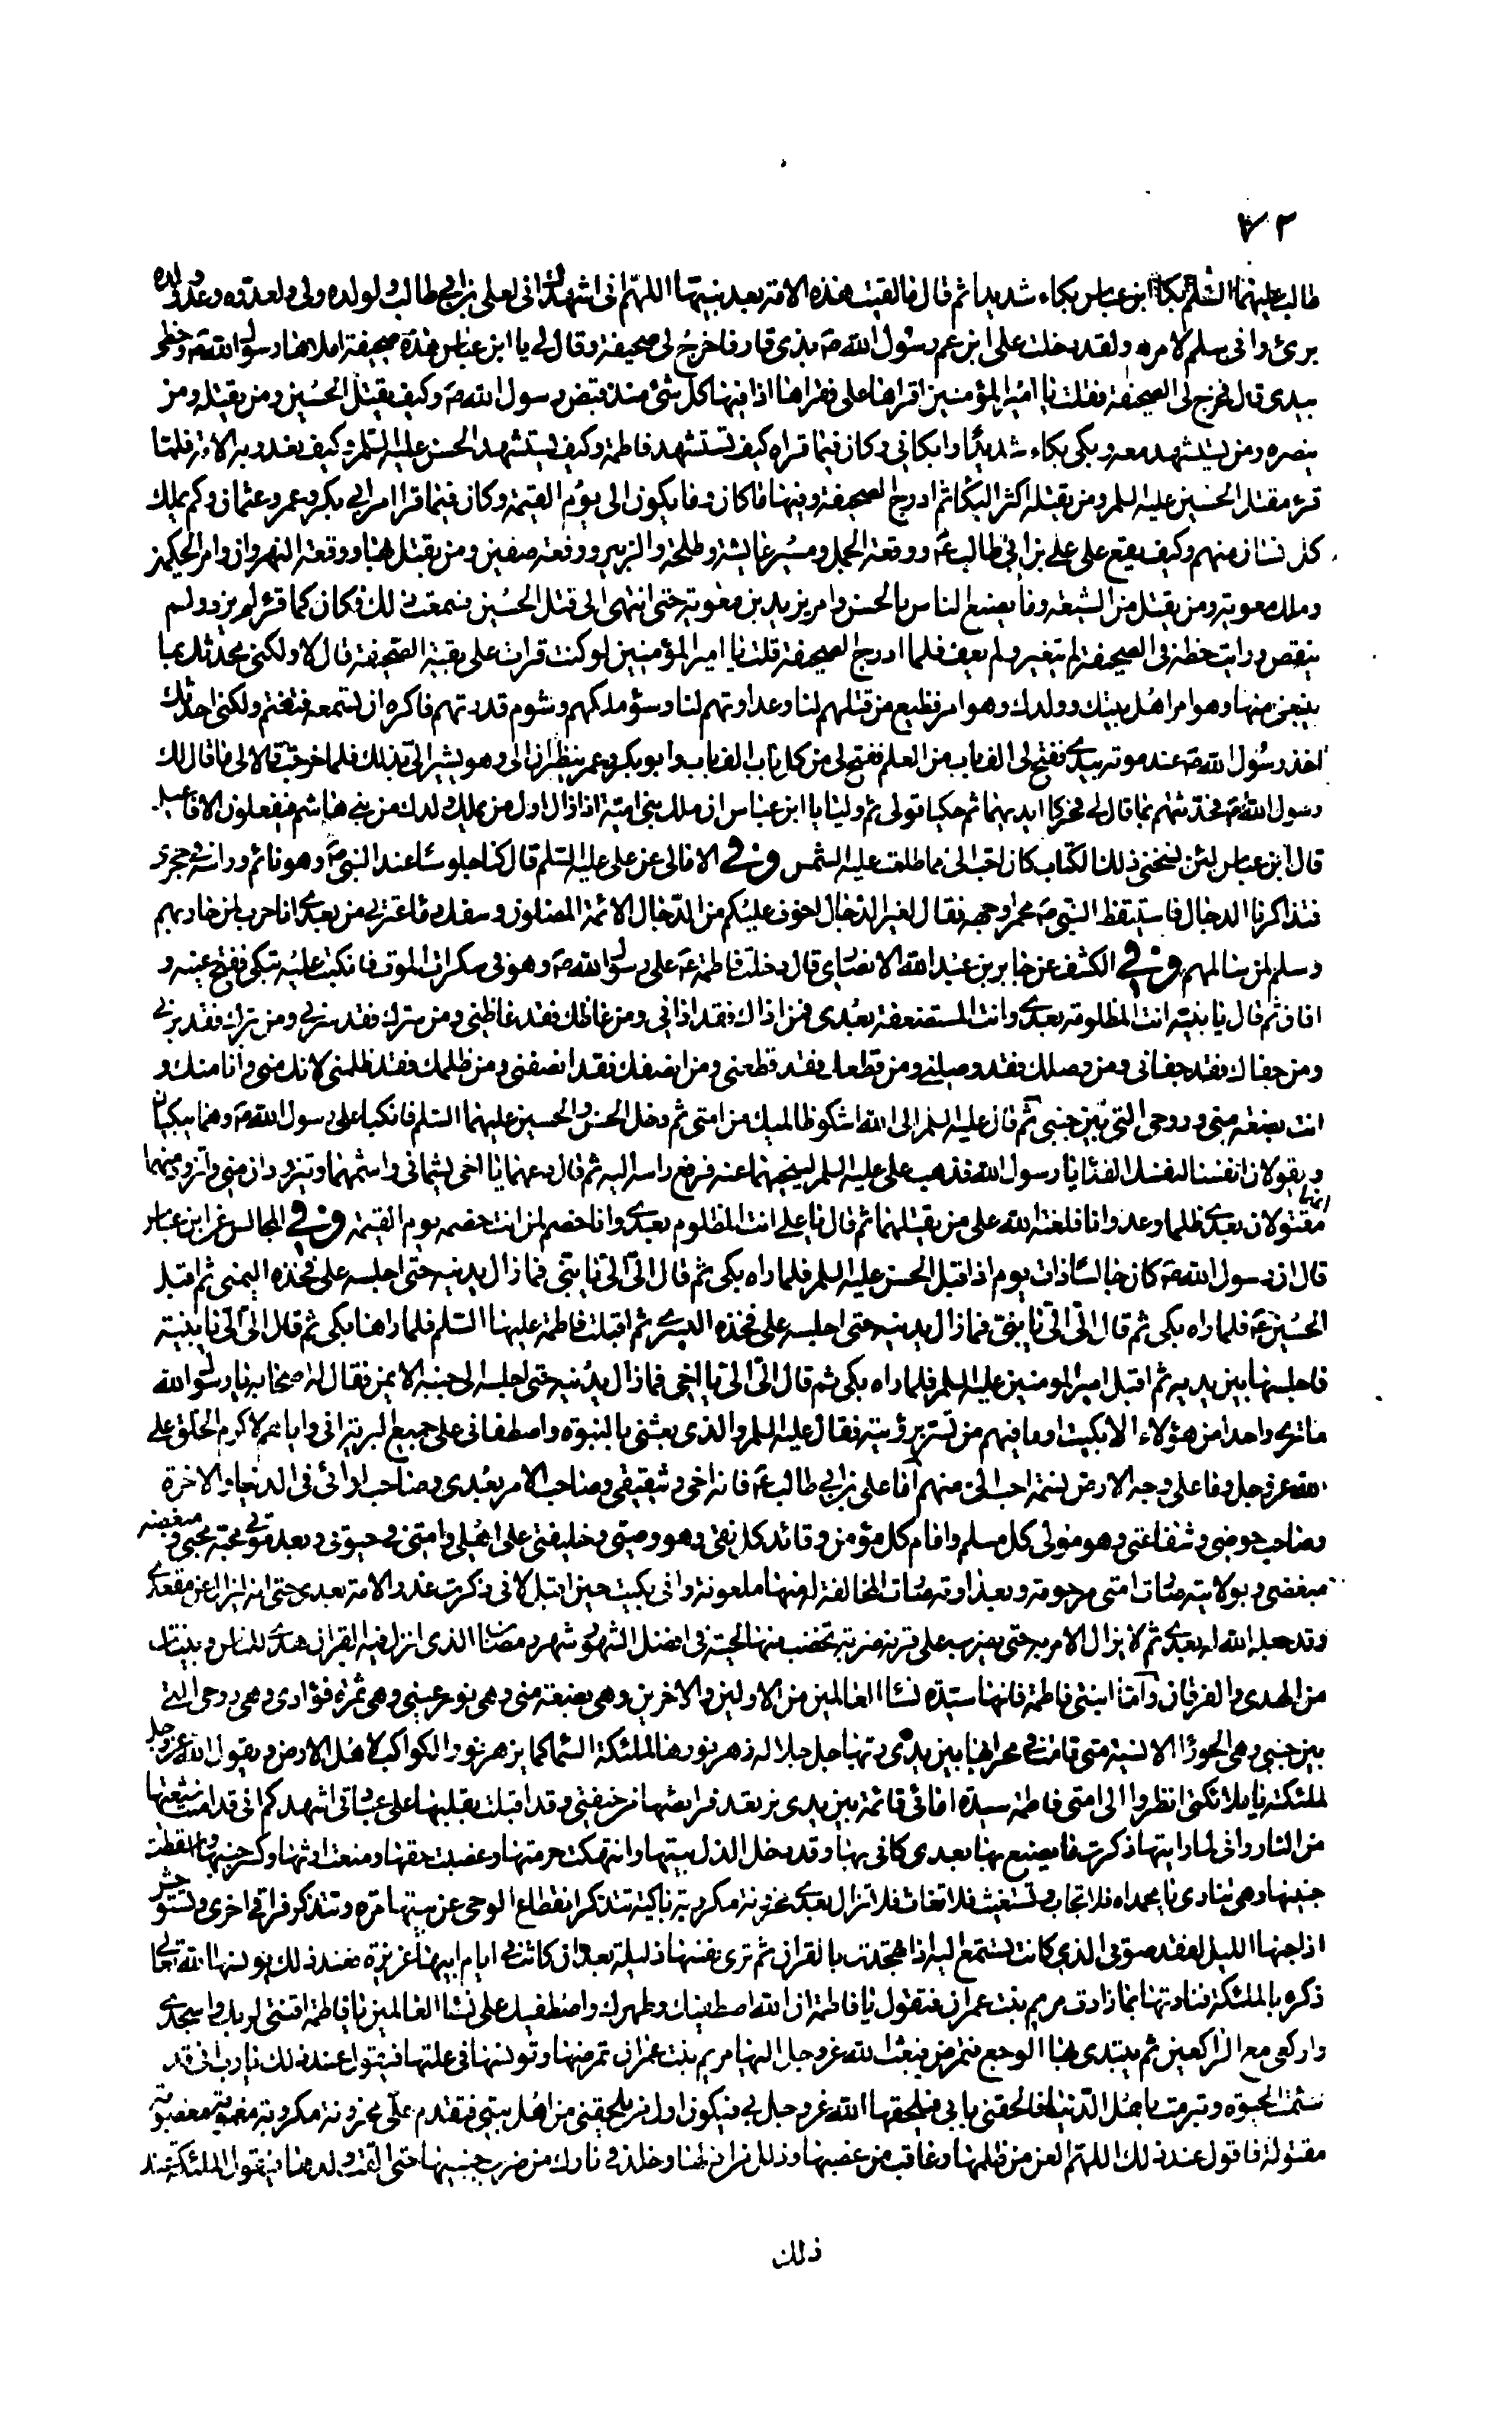 ٧٢
طالب عليهما السلم بكا ابن عباس بكاء شديدا ثم قال ما لقيت هذه الامة بعد نبيها اللهم انى اشهدك انى لعلى بن ابي طالب ولولده ولى ولعدوه وعدو ولده
برئ وانى سلم لامره ولقد دخلت على ابن عم رسول الله ص بذى قار فاخرج لى صحيفة وقال لے يا ابن عباس هذه صحيفة املاها رسول الله ص وخطى
بيدى قال فاخرج لى الصحيفة فقلت يا امير المؤمنين اقراها على فقراها اذا فيها كل شئ منذ قبض رسول الله ص وكيف يقتل الحسين ومن يقتله ومن
ينصره ومن يستشهد معه وبكى بكاء شديدا وابكانى وكان فيما قراه كيف تستشهد فاطمة وكيف يستشهد الحسن عليه السلم وكيف تغدر به الامة فلما
قرء مقتل الحسين عليه السلم ومن يقتله اكثر البكا ثم ادرج الصحيفة وفيها ما كان وما يكون الى يوم القيمة وكان فيما قرا امر ابي بكر وعمر وعثمان وكم يملك
كل انسان منهم وكيف يقع على علي بن ابى طالب ع ووقعة الجمل ومسير عايشة وطلحة والزبير ووقعة صفين ومن يقتل بها ووقعة النهروان وامر الحكمين
وملك معوية ومن يقتل من الشيعة وما يصنع الناس بالحسن وامر يزيد بن معوية حتى انتهى الى قتل الحسين فسمعت ذلك فكان كما قرء لم يزد ولم
ينقص ورايت خطه فى الصحيفة لم يتغير ولم يعف فلما ادرج الصحيفة قلت يا امير المؤمنين لو كنت قرات على بقية الصحيفة قال لا ولكنى محدثك بما
يمنعنى منها وهو امر اهل بيتك وولدك وهو امر فظيع من قتلهم لنا وعداوتهم لنا وسؤ ملكهم وشوم قدرتهم فاكره ان تسمعه فتغتم ولكنى احدثك
اخذ رسول الله ص عند موته بيدى ففتح لى الف باب من العلم ففتح لى من كل باب الف باب وابو بكر وعمر ينظران الى وهو يشير الى بذلك فلما خرجت قالا لى ما قال لك
رسول الله ص فحدثتهم بما قال لے فحركا ايديهما ثم حكيا قولى ثم وليا يا ابن عباس ان ملك بنى امية اذا زال اول من يملك ولدك من بنے هاشم فيفعلون الافاعيل
قال ابن عباس لئن نسخنى ذلك الكتاب كان احب الى مما طلعت عليه الشمس وفي الامالى عن على عليه السلم قال كنا جلوسا عند النبى ص وهو نائم وراسه فى حجرى
فتذاكرنا الدجال فاستيقظ النبى ص محمرا وجهه فقال لغير الدجال اخوف عليكم من الدجال الائمة المضلون وسفك دماء عترتى من بعدى انا حرب لمن حاربهم
وسلم لمن سالمهم وفي الكشف عن جابر بن عبد الله الانصارى قال دخلت فاطمة ع على رسول الله ص وهو فى سكرات الموت فانكبت عليه تبكى ففتح عينه و
افاق ثم قال يا بنية انت المظلومة بعدى وانت المستضعفة بعدى فمن اذاك فقد اذانى ومن غاظك فقد غاظنى ومن سرك فقد سرنى ومن برك فقد برنى
ومن جفاك فقد جفانى ومن وصلك فقد وصلنى ومن قطعك فقد قطعنى ومن انصفك فقد انصفنى ومن ظلمك فقد ظلمنى لانك منى وانا منك و
انت بضعة منى وروحى التى بين جنبى ثم قال عليه السلم الى الله اشكو ظالميك من امتى ثم دخل الحسن والحسين عليهما السلم فانكبا على رسول الله ص وهما يبكيان
ويقولان انفسنا لنفسك الفدا يا رسول الله فذهب على عليه السلم لينحيهما عنه فرفع راسه اليه ثم قال دعهما يا اخى يشمانى واشمهما ويتزودان منى واتزود منهما
انهما
مقتولان بعدى ظلما وعدوانا فلعنة الله على من يقتلهما ثم قال يا على انت المظلوم بعدى وانا خصم لمن انت خصمه يوم القيمة وفي المجالس عن ابن عباس
قال ان رسول الله ص كان جالسا ذات يوم اذ اقبل الحسن عليه السلم فلما راه بكى ثم قال الى الى يا بنى فما زال يدنيه حتى اجلسه على فخذه اليمنى ثم اقبل
الحسين ع فلما راه بكى ثم قال الى الى يا بنى فما زال يدنيه حتى اجلسه على فخذه اليسرى ثم اقبلت فاطمة عليها السلم فلما راها بكى ثم قال الى الى يا بنية
فاجلسها بين يديه ثم اقبل امير المومنين عليه السلم فلما راه بكى ثم قال الى الى يا اخى فما زال يدنيه حتى اجلسه الى جنبه الايمن فقال له اصحابه يا رسول الله
ما ترى واحدا من هؤلاء الا بكيت اوما فيهم من تسر برؤيته فقال عليه السلم والذى بعثنى بالنبوه واصطفانى على جميع البرية انى واياهم لاكرم الخلق على
الله عز وجل وما على وجه الارض نسمة احب الى منهم اما على بن ابي طالب ع فانه اخى وشقيقى وصاحب الامر بعدى وصاحب لوائى فى الدنيا والاخرة
وصاحب حوضى وشفاعتى وهو مولى كل مسلم وامام كل مؤمن وقائد كل تقى وهو وصيى وخليفتى على اهلى وامتى فى حيوتى وبعد موتى محبه محبى ومبغضه
مبغضى وبولايته صارت امتى مرحومة وبعداوته صارت المخالفة له منها ملعونة وانى بكيت حين اقبل لانى ذكرت غدر الامة بعدى حتى انه ليزال عن مقعدى
وقد جعله الله له بعدى ثم لا يزال الامر به حتى يضرب على قرنه ضربة تخضب منها لحيته فى افضل الشهور شهر رمضان الذى انزل فيه القران هدى للناس وبينات
من الهدى والفرقان واما ابنتى فاطمة فانها سيدة نساء العالمين من الاولين والاخرين وهى بضعة منى وهى نور عينى وهى ثمرة فؤادى وهى روحى التى
بين جنبى وهى الحورا الانسية متى قامت فى محرابها بين يدى ربها جل جلاله زهر نورها لملئكة السما كما يزهر نور الكواكب لاهل الارض ويقول الله عز وجل
لملئكته يا ملائكتى انظروا الى امتى فاطمة سيدة امائى قائمة بين يدى ترتعد فرايصها من خيفتى وقد اقبلت بقلبها على عبادتى اشهدكم انى قد امنت شيعتها
من النار وانى لما رايتها ذكرت ما يصنع بها بعدى كانى بها وقد دخل الذل بيتها وانتهكت حرمتها وغصبت حقها ومنعت ارثها وكسر جنبها واسقطت
جنينها وهى تنادى يا محمداه فلا تجاب وتستغيث فلا تغاث فلا تزال بعدى محزونة مكروبة باكية تتذكر انقطاع الوحى عن بيتها مرة وتتذكر فراقى اخرى وتستوحش
اذا جنها الليل لفقد صوتى الذى كانت تستمع اليه اذا تهجدت بالقران ثم ترى نفسها ذليلة بعد ان كانت فى ايام ابيها عزيزة فعند ذلك يونسها الله تعالى
ذكره بالملئكة فنادتها بما نادت مريم بنت عمران فتقول يا فاطمة ان الله اصطفيك وطهرك واصطفيك على نساء العالمين يا فاطمة اقنتى لربك واسجدى
واركعى مع الراكعين ثم يبتدى بها الوجع فتمرض فيبعث الله عز وجل اليها مريم بنت عمران تمرضها وتونسها فى علتها فتقول عند ذلك يا رب انى قد
سئمت الحيوة وتبرمت باهل الدنيا فالحقنى بابى فيلحقها الله عز وجل بى فتكون اول من يلحقنى من اهل بيتى فتقدم على محزونة مكروبة مغمومة مغصوبة
مقتولة فاقول عند ذلك اللهم العن من ظلمها وعاقب من غصبها وذلل من اذلها وخلد فى نارك من ضرب جنبيها حتى القت ولدها فتقول الملئكة عند
ذلك